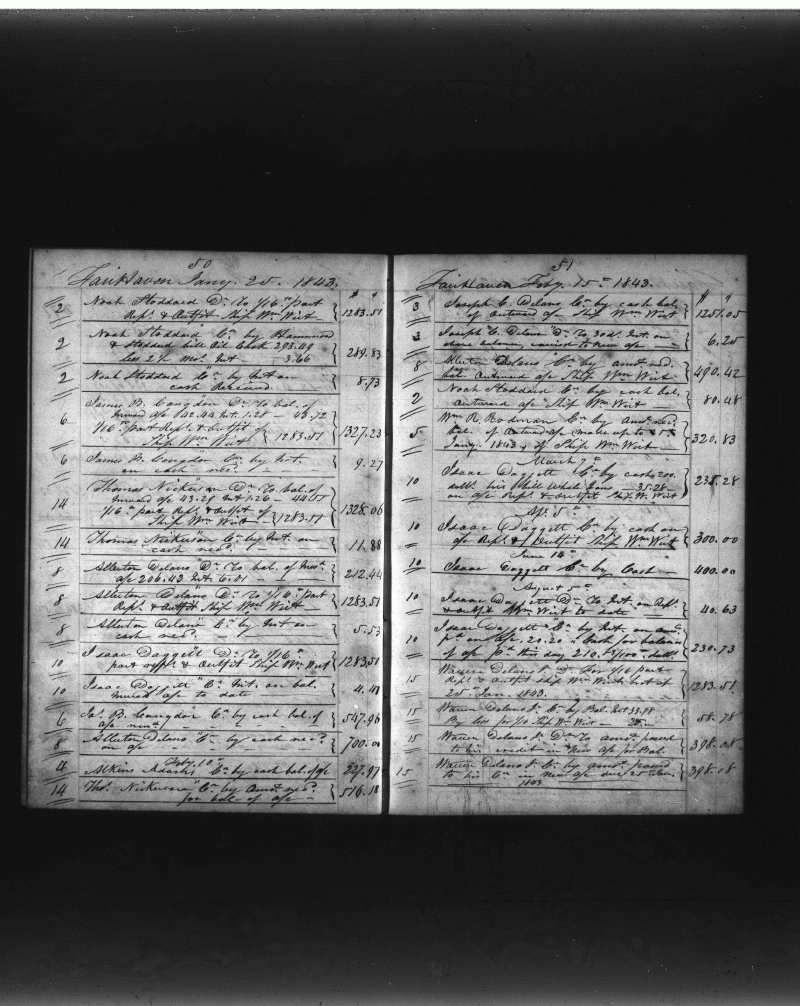 50
Fairhaven Jany. 25. 1843.
2 Noah Stoddard Dr. To 1/16th part
Repr. & Outfit Ship Wm Wirt 1283.51
2 Noah Stoddard Cr. by Hammond
& Stoddard bill Oil Cask 293.49
less 2½ mos. Int — 3.66 289.83
2 Noah Stoddard Cr. by Int on
cash Received 8.73
James B. Congdon Dr. To bal. of
Inward a/c 42.44 Int. 1.28 — 43.72
6 1/16th part Repr. & Outfit of
Ship Wm Wirt 1283.51 1327.23
6 James B. Congdon Cr. by Int.
on cash recd. — 9.27
Thomas Nickerson Dr. To bal. of
Inward a/c 43.29 Int 1.26 — 44.55
14 1/16th part Repr. & Outfit of
Ship Wm Wirt — 1283.51 1328.06
14 Thomas Nickerson Cr. by Int. on
cash recd. — 11.88
8 Allerton Delano Dr. To bal. of
a/c 206.43 Int. 6.01 — 212.44
8 Allerton Delano Dr. To 1/16th part
Repr. & Outfit Ship Wm Wirt — 1283.51
8 Allerton Delano Cr. by Int on
cash recd. — 5.53
10 Isaac Daggett Dr. To 1/16th
part Repr. & Outfit Ship Wm Wirt 1283.51
10 Isaac Daggett Cr. Int. on bal.
Inward a/c to date 4.41
6 Jas. B. Congdon Cr. by cash bal. of
a/c 547.96
8 Allerton Delano Cr. by cash recd.
on a/c — 700.00
Feby. 10th
4 Atkins Adams Cr. by cash bal. of a/c 227.97
14 Thos. Nickerson Cr. by Amt. recd.
for bal. of a/c — 516.18
51
Fairhaven Feby. 15th 1843.
3 Joseph C. Delano Cr. by cash bal.
of Outward a/c Ship Wm Wirt 1251.05
3 Joseph C. Delano Dr. To 30 ds. Int. on
above balance, carried to New a/c — 6.25
8 Allerton Delano Cr. by amt. recd.
bal. Outward a/c Ship Wm Wirt 490.42
2 Noah Stoddard Cr. by cash bal.
outward a/c Ship Wm Wirt — 80.48
Wm R. Rodman Cr. by Amt. rec.
5 bal. of Outward a/c made up to 25th
Jany. 1843, of Ship Wm Wirt — 320.83
March 7th
10 Isaac Daggett Cr. by cash 200.
his bill — 35.28
on a/c Repr. & Outfit Ship W. Wirt 235.28
Ap. 5th
10 Isaac Daggett Cr. by cash on
a/c Repr. & Outfit Ship Wm Wirt 300.00
June 14th
10 Isaac Daggett Cr. by Cash — 400.00
August 5th
10 Isaac Daggett Dr. To Int. on Repr.
& outfit Wm Wirt to date 40.63
10 Isaac Daggett Cr. by Int. on amt.
pd. on a/c 20.20 & Cash for balance
of a/c pd. this day 210. 53/100 dolls. 230.73
15 Warren Delano Jr. Dr. For 1/16 part
Repr. & Outfit ship Wm Wirt
25th Jan. 1843. 1283.51
15 Warren Delano Jr. Cr. by Bal. Int 33.78
Ship Wm Wirt — 58.78
15 Warren Delano Jr. Dr. To amot.
to his credit in New a/c for Bal. 398.08
15 Warren Delano Jr. Cr. by amot.
to his Cr. in New a/c due 25th Jan.
1843 398.08